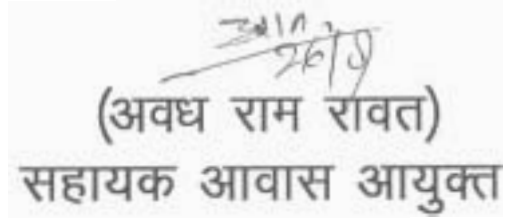 (अवध राम रावत)
सहायक आवास आयुक्त